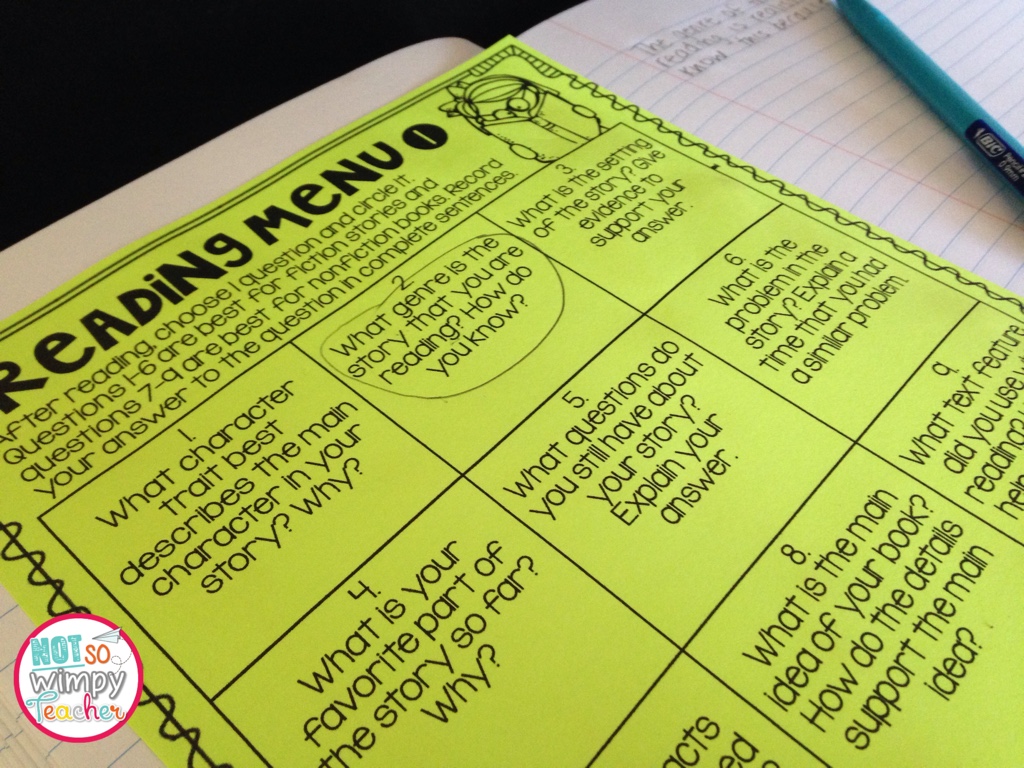 The genre of
reading is
know this
READING MENU 1
After reading, choose 1 question and circle it.
Questions 1-6 are best for fiction stories and
questions 7-9 are best for nonfiction books. Record
your answer to the question in complete sentences.
1.
What character
trait best
describes the main
character in your
story? Why?
2
What genre is the
story that you are
reading? How do
you know?
3.
What is the setting
of the story? Give
evidence to
support your
answer.
4.
What is your
favorite part of
the story so far?
Why?
5.
What questions do
you still have about
your story?
Explain your
answer.
6.
What is the
problem in the
story? Explain a
time that you had
a similar problem.
8.
What is the main
idea of your book?
How do the details
support the main
idea?
9.
What text feature
did you use
reading?
BIC
NOT SO
wimpy
Teacher